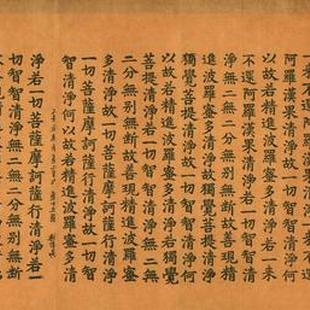 阿羅漢果清淨故一切智智清淨何
以故若精進波羅蜜多清淨若一來
不還阿羅漢果清淨若一切智智清
淨無二無二分無別無斷故善現精
進波羅蜜多清淨故獨覺菩提清淨
獨覺菩提清淨故一切智智清淨何
以故若精進波羅蜜多清淨若獨覺
菩提清淨若一切智智清淨無二無
二分無別無斷故善現精進波羅蜜
多清淨故一切菩薩摩訶薩行清淨
一切菩薩摩訶薩行清淨故一切智
智清淨何以故若精進波羅蜜多清
淨若一切菩薩摩訶薩行清淨若一
切智智清淨無二無二分無別無斷